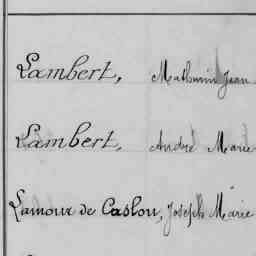 Lambert, Mathurin Jean
Lambert, André Marie
Lamour de Caslou, Joseph Marie